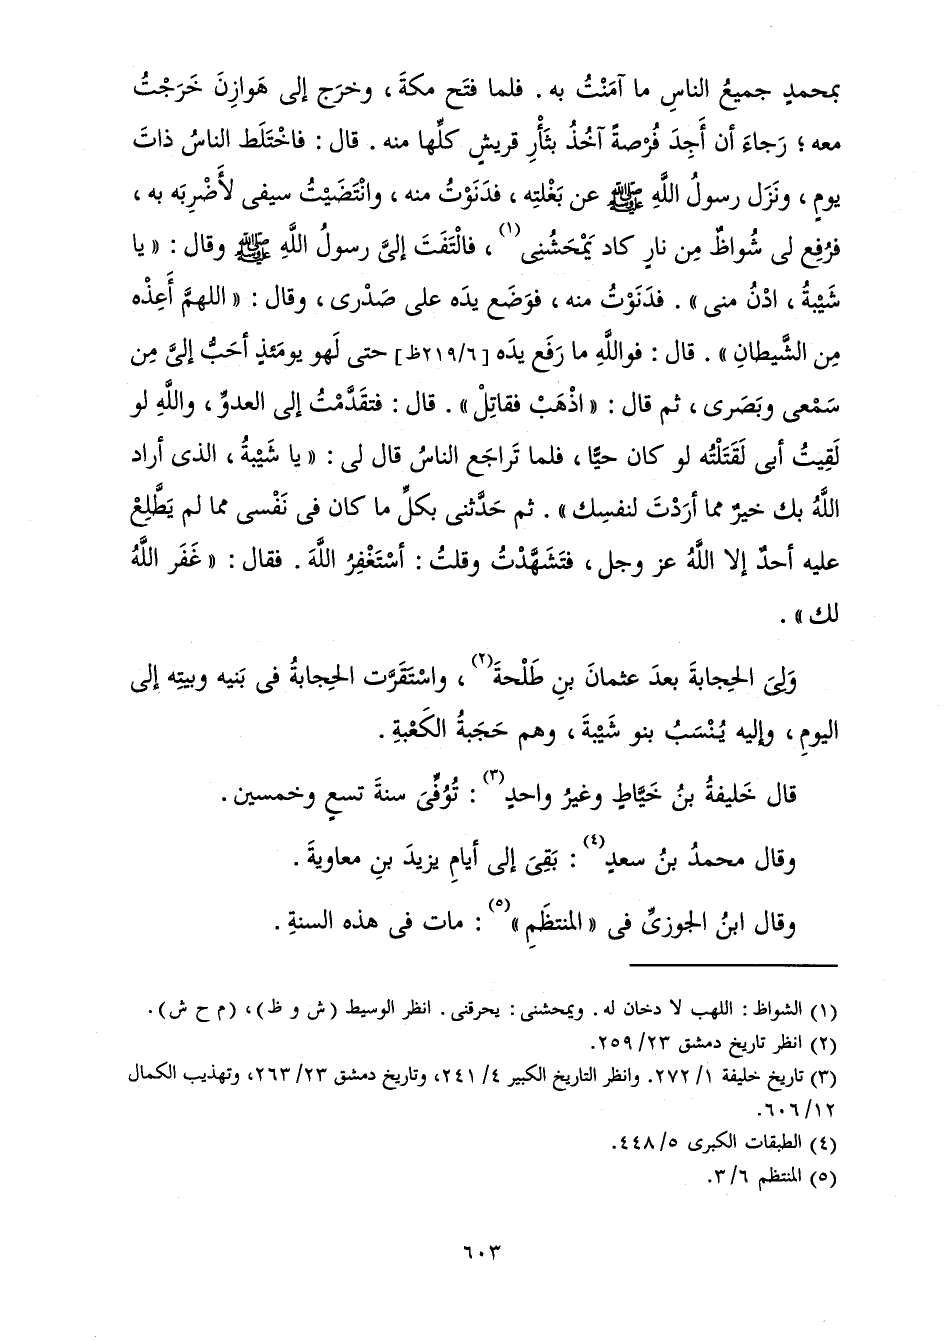 بمحمدٍ جميعُ الناسِ ما آمَنْتُ به . فلما فتَح مكةَ ، وخرَج إلى هَوازِنَ خَرَجْتُ
معه ؛ رَجاءَ أن أَجِدَ فُرْصةً آخُذُ بثَأْرِ قريشٍ كلِّها منه . قال : فاخْتَلَط الناسُ ذاتَ
يومٍ ، ونَزَل رسولُ اللَّهِ ﷺ عن بَغْلتِه ، فدَنَوْتُ منه ، وانْتَضَيْتُ سيفى لأَضْرِبَه به ،
فرُفِع لى شُواظٌ مِن نارٍ كاد يَمْحَشُنى(١) ، فالْتَفَتَ إلىَّ رسولُ اللَّهِ ﷺ وقال : « يا
شَيْبةُ ، ادْنُ منى » . فدَنَوْتُ منه ، فوَضَع يدَه على صَدْرى ، وقال : « اللهمَّ أَعِذْه
مِن الشَّيطانِ » . قال : فواللَّهِ ما رَفَع يدَه [٢١٩/٦ظ] حتى لَهو يومَئذٍ أحَبُّ إلىَّ مِن
سَمْعى وبَصَرى ، ثم قال : « اذْهَبْ فقاتِلْ » . قال : فتقَدَّمْتُ إلى العدوِّ ، واللَّهِ لو
لَقِيتُ أبى لَقَتَلْتُه لو كان حيًّا ، فلما تَراجَع الناسُ قال لى : « يا شَيْبةُ ، الذى أراد
اللَّهُ بك خيرٌ مما أرَدْتَ لنفسِك » . ثم حَدَّثنى بكلِّ ما كان فى نَفْسى مما لم يَطَّلِعْ
عليه أحدٌ إلا اللَّهُ عز وجل ، فتَشَهَّدْتُ وقلتُ : أسْتَغْفِرُ اللَّهَ . فقال : « غَفَر اللَّهُ
لك » .
وَلِىَ الحِجابةَ بعدَ عثمانَ بنِ طَلْحةَ(٢) ، واسْتَقَرَّت الحِجابةُ فى بَنيه وبيتِه إلى
اليومِ ، وإليه يُنْسَبُ بنو شَيْبةَ ، وهم حَجَبةُ الكَعْبةِ .
قال خَليفةُ بنُ خَيَّاطٍ وغيرُ واحدٍ(٣) : تُوُفِّىَ سنةَ تسعٍ وخمسين .
وقال محمدُ بنُ سعدٍ(٤) : بَقِىَ إلى أيامِ يزيدَ بنِ معاويةَ .
وقال ابنُ الجوزىِّ فى « المنتظَمِ »(٥) : مات فى هذه السنةِ .
(١) الشواظ : اللهب لا دخان له . ويمحشنى : يحرقنى . انظر الوسيط (ش و ظ) ، (م ح ش) .
(٢) انظر تاريخ دمشق ٢٣/ ٢٥٩.
(٣) تاريخ خليفة ١/ ٢٧٢. وانظر التاريخ الكبير ٤/ ٢٤١، وتاريخ دمشق ٢٣/ ٢٦٣، وتهذيب الكمال
١٢/ ٦٠٦.
(٤) الطبقات الكبرى ٥/ ٤٤٨.
(٥) المنتظم ٦/ ٣.
٦٠٣